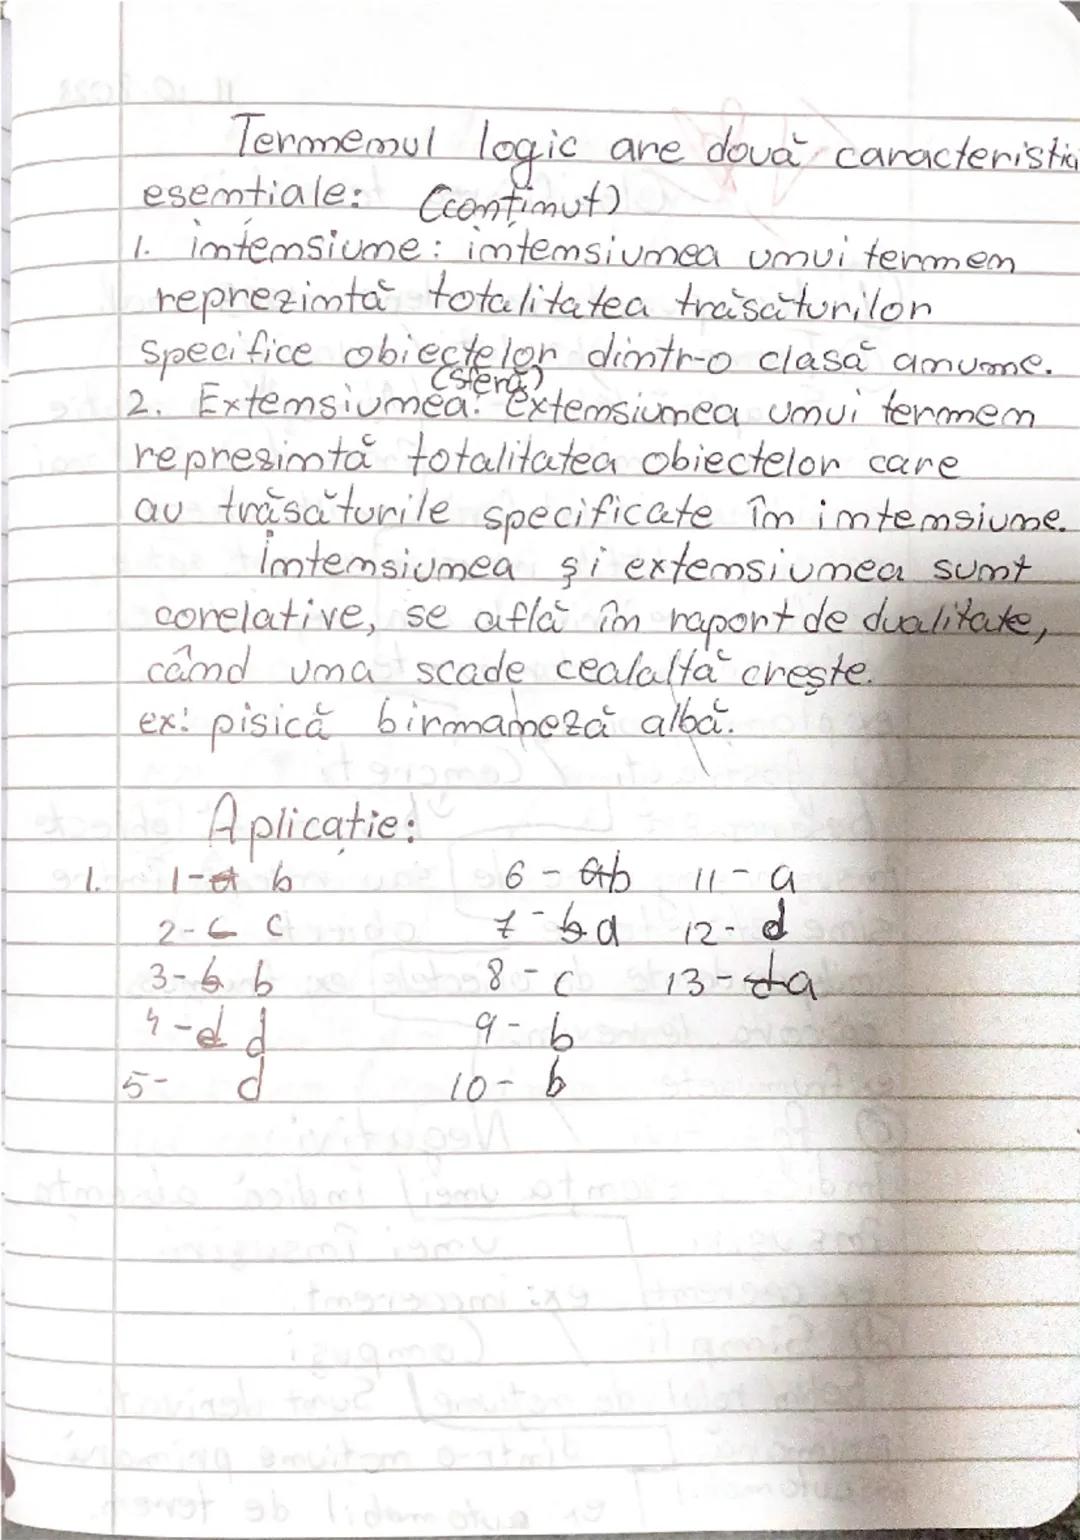 Termenul logic are două caracteristici
esentiale: (conținut)
1. intensiune: intensiunea unui termen
reprezintă totalitatea trăsăturilor
specifice obiectelor dintr-o clasă anume.
(sferă)
2. Extensiunea: extensiunea unui termen
reprezintă totalitatea obiectelor care
au trăsăturile specificate în intensiune.
Intensiunea și extensiunea sunt
corelative, se află în raport de dualitate,
când una scade cealaltă crește.
ex: pisică birmaneză albă.
Aplicație:
1. 1- b 6 - b 11 - a
2- c 7 - a 12- d
3- b 8 - c 13- a
4- d 9 - b
5- d 10 - b